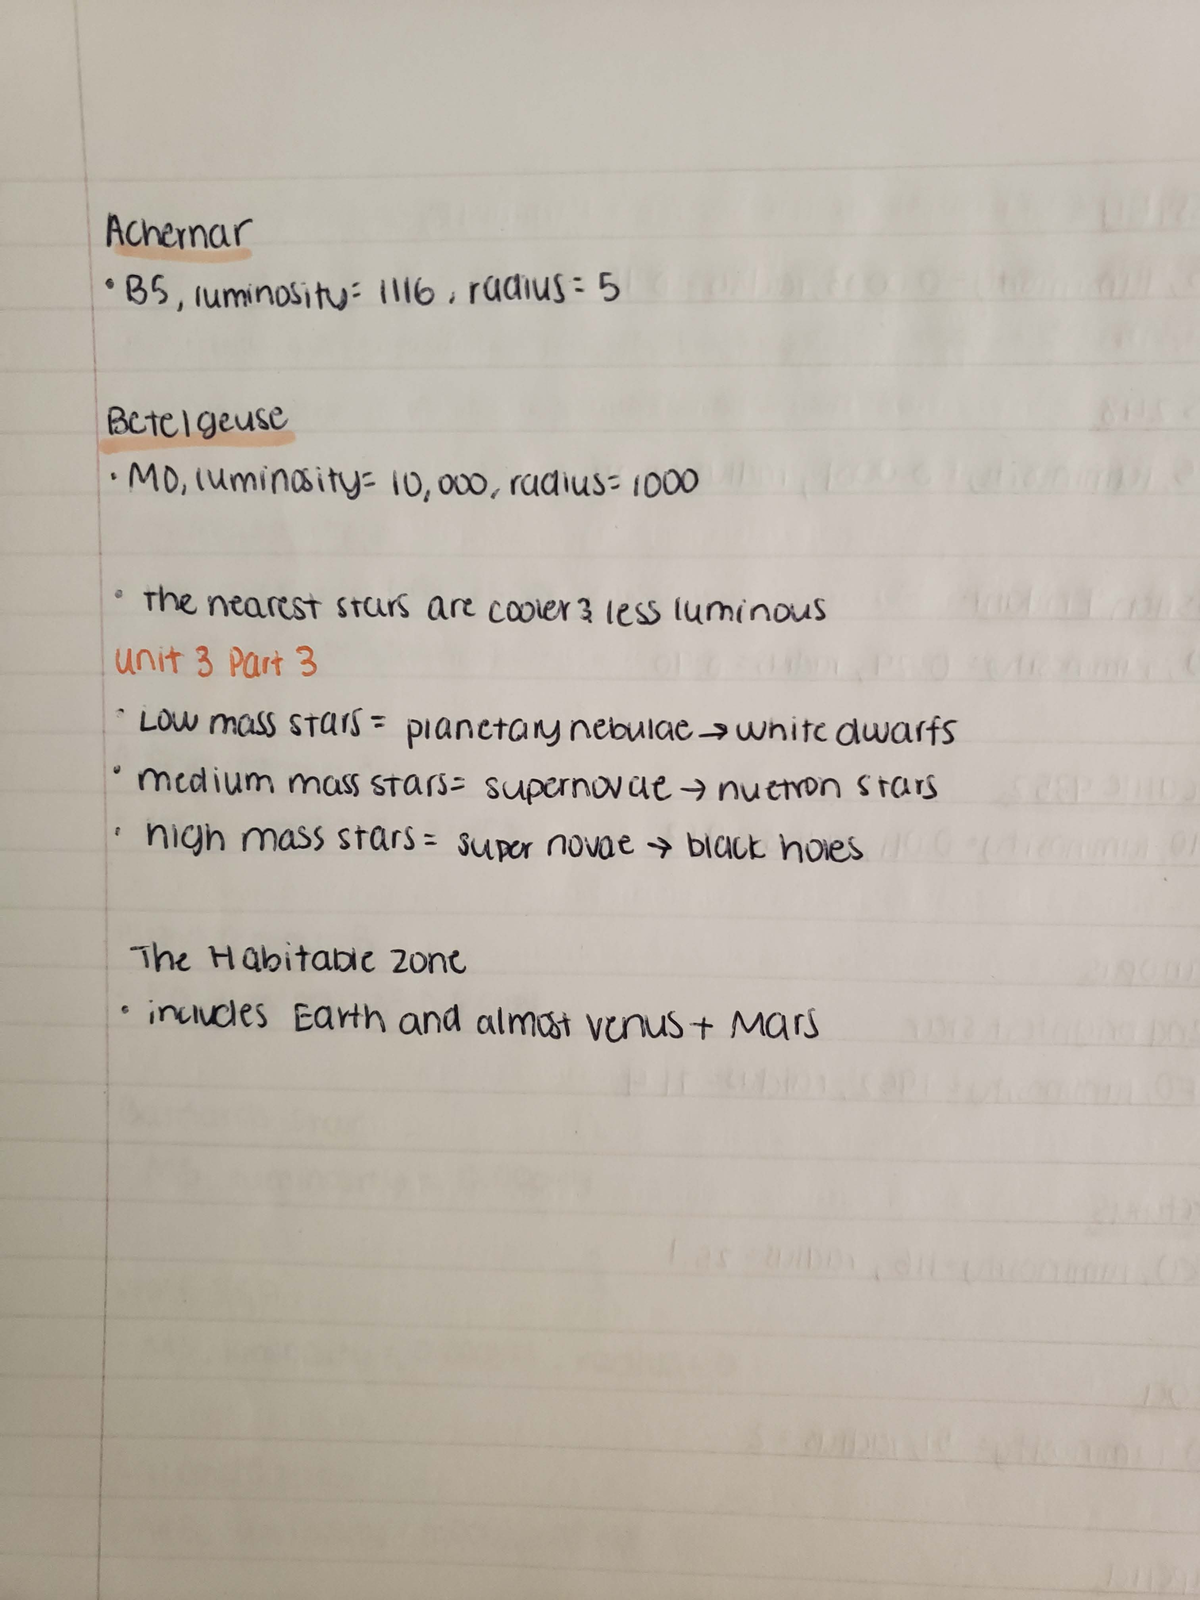 Achernar
• B5, luminosity = 1116, radius = 5
Betelgeuse
• M0, luminosity = 10,000, radius = 1000
• the nearest stars are cooler & less luminous
unit 3 Part 3
• Low mass stars = planetary nebulae → white dwarfs
• medium mass stars = supernovae → nuetron stars
• high mass stars = super novae → black holes
The Habitable zone
• includes Earth and almost venus + Mars